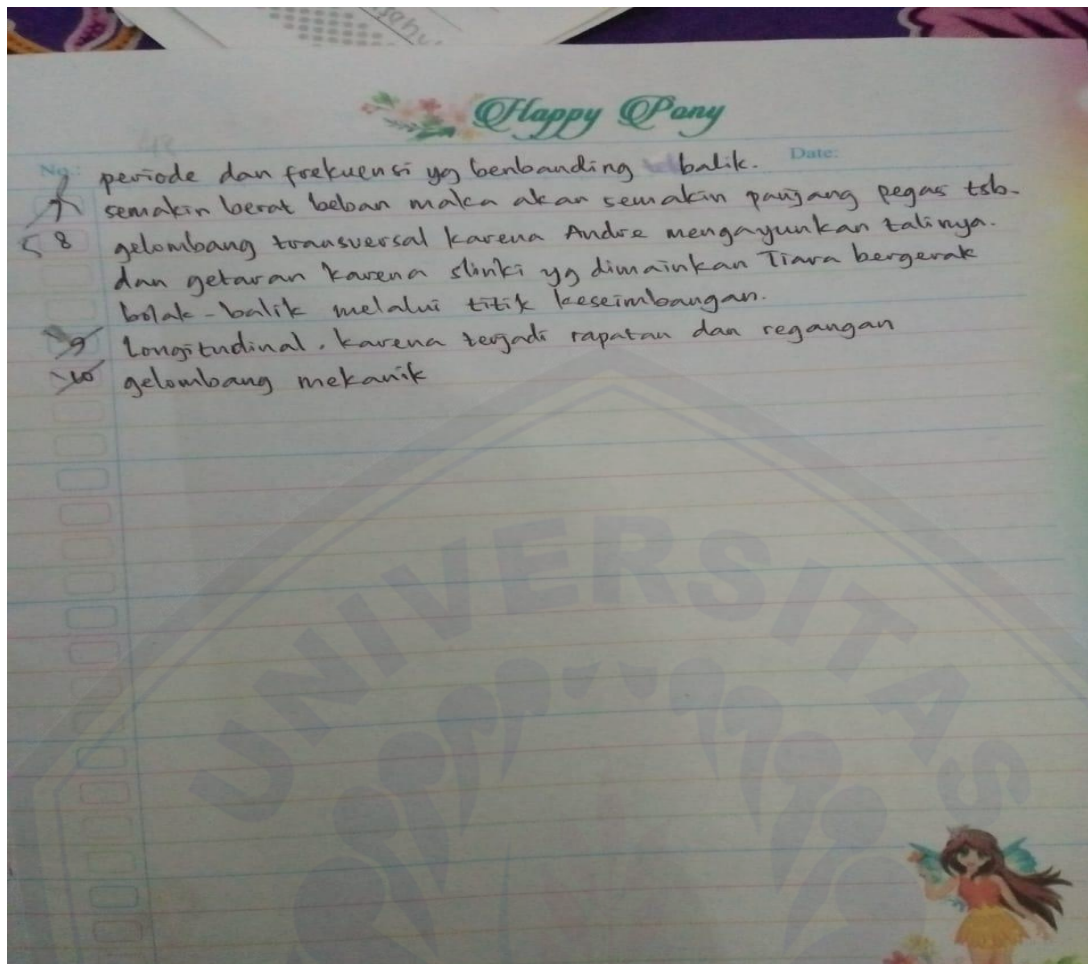 Happy Pony
No: Date:
periode dan frekuensi yg benbanding balik.
7 semakin berat beban maka akan semakin panjang pegas tsb.
8 gelombang transversal karena Andre mengayunkan talinya.
dan getaran karena slinki yg dimainkan Tiara bergerak
bolak-balik melalui titik keseimbangan.
9 Longitudinal, karena terjadi rapatan dan regangan
10 gelombang mekanik
UNIVERSITAS